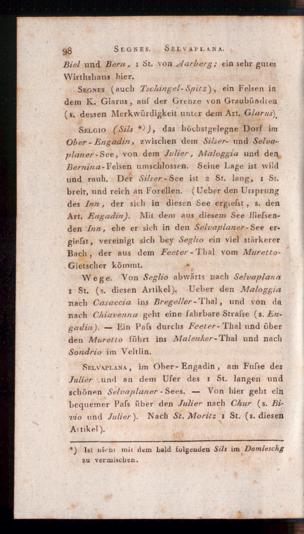 98 SEGNES. SELVAPLANA.
Biel und Bern, 1 St. von Aarberg; ein sehr gutes
Wirthshaus hier.
SEGNES (auch Tschingel-Spitz), ein Felsen in
dem K. Glarus, auf der Grenze von Graubünden
(s. dessen Merkwürdigkeit unter dem Art. Glarus).
SELGIO (Sils *)), das höchstgelegne Dorf im
Ober-Engadin, zwischen dem Silser- und Selva-
planer-See, von dem Julier, Maloggia und den
Bernina-Felsen umschlossen. Seine Lage ist wild
und rauh. Der Silser-See ist 2 St. lang, 1 St.
breit, und reich an Forellen. (Ueber den Ursprung
des Inn, der sich in diesen See ergießt, s. den
Art. Engadin). Mit dem aus diesem See fließen-
den Inn, ehe er sich in den Selvaplaner-See er-
gießt, vereinigt sich bey Seglio ein viel stärkerer
Bach, der aus dem Feeter-Thal vom Muretto-
Gletscher kömmt.
Wege. Von Seglio abwärts nach Selvaplana
1 St. (s. diesen Artikel). Ueber den Maloggia
nach Casaccia ins Bregeller-Thal, und von da
nach Chiavenna geht eine fahrbare Straße (s. En-
gadin). — Ein Paß durchs Feeter-Thal und über
den Muretto führt ins Malenker-Thal und nach
Sondrio im Veltlin.
SELVAPLANA, im Ober-Engadin, am Fuße des
Julier und an dem Ufer des 1 St. langen und
schönen Selvaplaner-Sees. — Von hier geht ein
bequemer Paß über den Julier nach Chur (s. Bi-
vio und Julier). Nach St. Moritz 1 St. (s. diesen
Artikel).
*) Ist nicht mit dem bald folgenden Sils im Domleschg
zu vermischen.